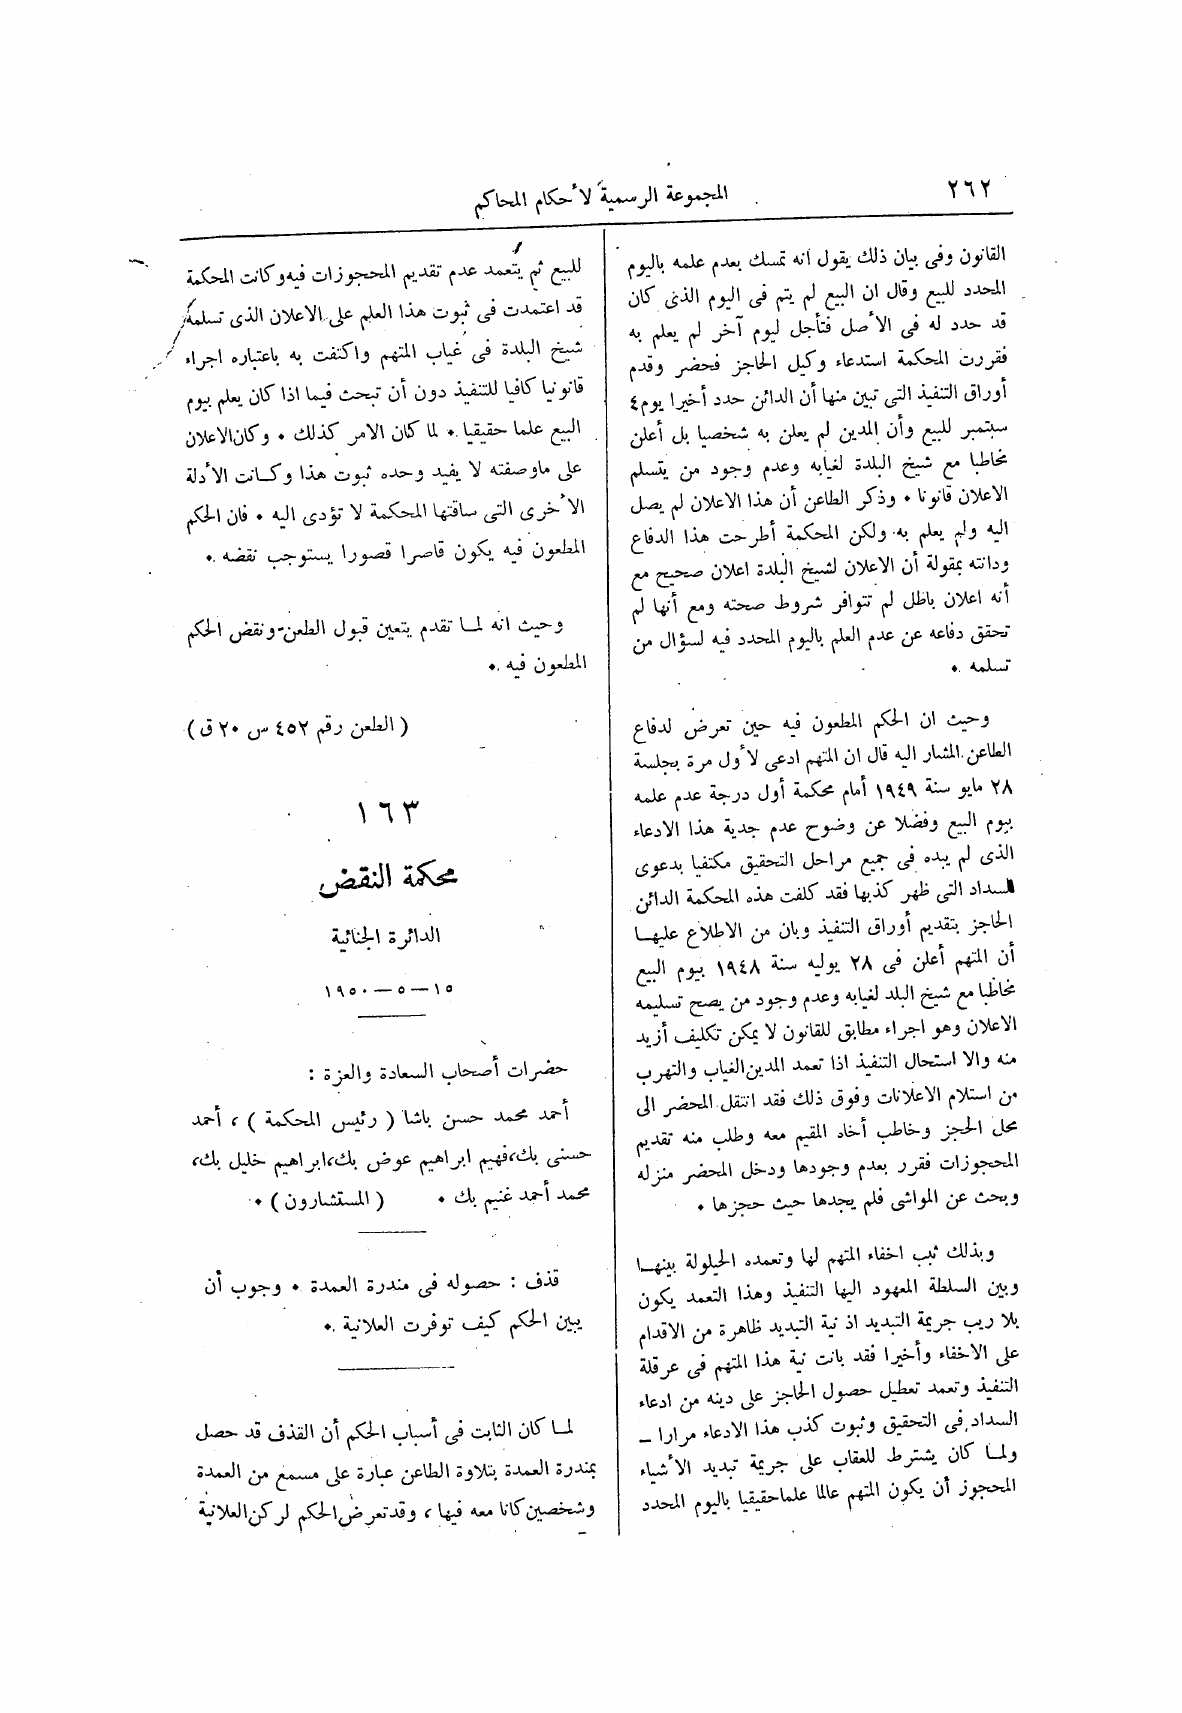 ٢٦٢
المجموعة الرسمية لأحكام المحاكم
القانون وفى بيان ذلك يقول انه تمسك بعدم علمه باليوم
المحدد للبيع وقال ان البيع لم يتم فى اليوم الذى كان
قد حدد له فى الأصل فتأجل ليوم آخر لم يعلم به
فقررت المحكمة استدعاء وكيل الحاجز فحضر وقدم
أوراق التنفيذ التى تبين منها أن الدائن حدد أخيرا يوم ٤
سبتمبر للبيع وأن المدين لم يعلن به شخصيا بل أعلن
مخاطبا مع شيخ البلدة لغيابه وعدم وجود من يتسلم
الاعلان قانونا • وذكر الطاعن أن هذا الاعلان لم يصل
اليه ولم يعلم به ولكن المحكمة أطرحت هذا الدفاع
ودانته بمقولة أن الاعلان لشيخ البلدة اعلان صحيح مع
أنه اعلان باطل لم تتوافر شروط صحته ومع أنها لم
تحقق دفاعه عن عدم العلم باليوم المحدد فيه لسؤال من
تسلمه •
وحيث ان الحكم المطعون فيه حين تعرض لدفاع
الطاعن المشار اليه قال ان المتهم ادعى لأول مرة بجلسة
٢٨ مايو سنة ١٩٤٩ أمام محكمة أول درجة عدم علمه
بيوم البيع وفضلا عن وضوح عدم جدية هذا الادعاء
الذى لم يبده فى جميع مراحل التحقيق مكتفيا بدعوى
السداد التى ظهر كذبها فقد كلفت هذه المحكمة الدائن
الحاجز بتقديم أوراق التنفيذ وبان من الاطلاع عليهـا
أن المتهم أعلن فى ٢٨ يوليه سنة ١٩٤٨ بيوم البيع
مخاطبا مع شيخ البلد لغيابه وعدم وجود من يصح تسليمه
الاعلان وهو اجراء مطابق للقانون لا يمكن تكليف أزيد
منه والا استحال التنفيذ اذا تعمد المدين الغياب والتهرب
من استلام الاعلانات وفوق ذلك فقد انتقل المحضر الى
محل الحجز وخاطب أخاه المقيم معه وطلب منه تقديم
المحجوزات فقرر بعدم وجودها ودخل المحضر منزله
وبحث عن المواشى فلم يجدها حيث حجزها •
وبذلك ثبت اخفاء المتهم لها وتعمده الحيلولة بينهـا
وبين السلطة المعهود اليها التنفيذ وهذا التعمد يكون
بلا ريب جريمة التبديد اذ نية التبديد ظاهرة من الاقدام
على الاخفاء وأخيرا فقد بانت نية هذا المتهم فى عرقلة
التنفيذ وتعمد تعطيل حصول الحاجز على دينه من ادعاء
السداد فى التحقيق وثبوت كذب هذا الادعاء مرارا –
ولمـا كان يشترط للعقاب على جريمة تبديد الأشياء
المحجوز أن يكون المتهم عالما علما حقيقيا باليوم المحدد
للبيع ثم يتعمد عدم تقديم المحجوزات فيه وكانت المحكمة
قد اعتمدت فى ثبوت هذا العلم على الاعلان الذى تسلمه
شيخ البلدة فى غياب المتهم واكتفت به باعتباره اجراء
قانونيا كافيا للتنفيذ دون أن تبحث فيما اذا كان يعلم بيوم
البيع علما حقيقيا • لما كان الامر كذلك • وكان الاعلان
على ماوصفته لا يفيد وحده ثبوت هذا وكـانت الأدلة
الأخرى التى ساقتها المحكمة لا تؤدى اليه • فان الحكم
المطعون فيه يكون قاصرا قصورا يستوجب نقضه •
وحيث انه لمـا تقدم يتعين قبول الطعن ونقض الحكم
المطعون فيه •
( الطعن رقم ٤٥٢ س ٢٠ ق )
١٦٣
محكمة النقض
الدائرة الجنائية
١٥ – ٥ – ١٩٥٠
حضرات أصحاب السعادة والعزة :
أحمد محمد حسن باشا ( رئيس المحكمة ) ، أحمد
حسنى بك، فهيم ابراهيم عوض بك، ابراهيم خليل بك،
محمد أحمد غنيم بك • ( المستشارون ) •
قذف : حصوله فى مندرة العمدة • وجوب أن
يبين الحكم كيف توفرت العلانية •
لمـا كان الثابت فى أسباب الحكم أن القذف قد حصل
بمندرة العمدة بتلاوة الطاعن عبارة على مسمع من العمدة
وشخصين كانا معه فيها ، وقد تعرض الحكم لركن العلانية